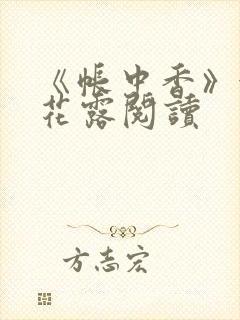 《帳中香》
花露閱讀
方志宏